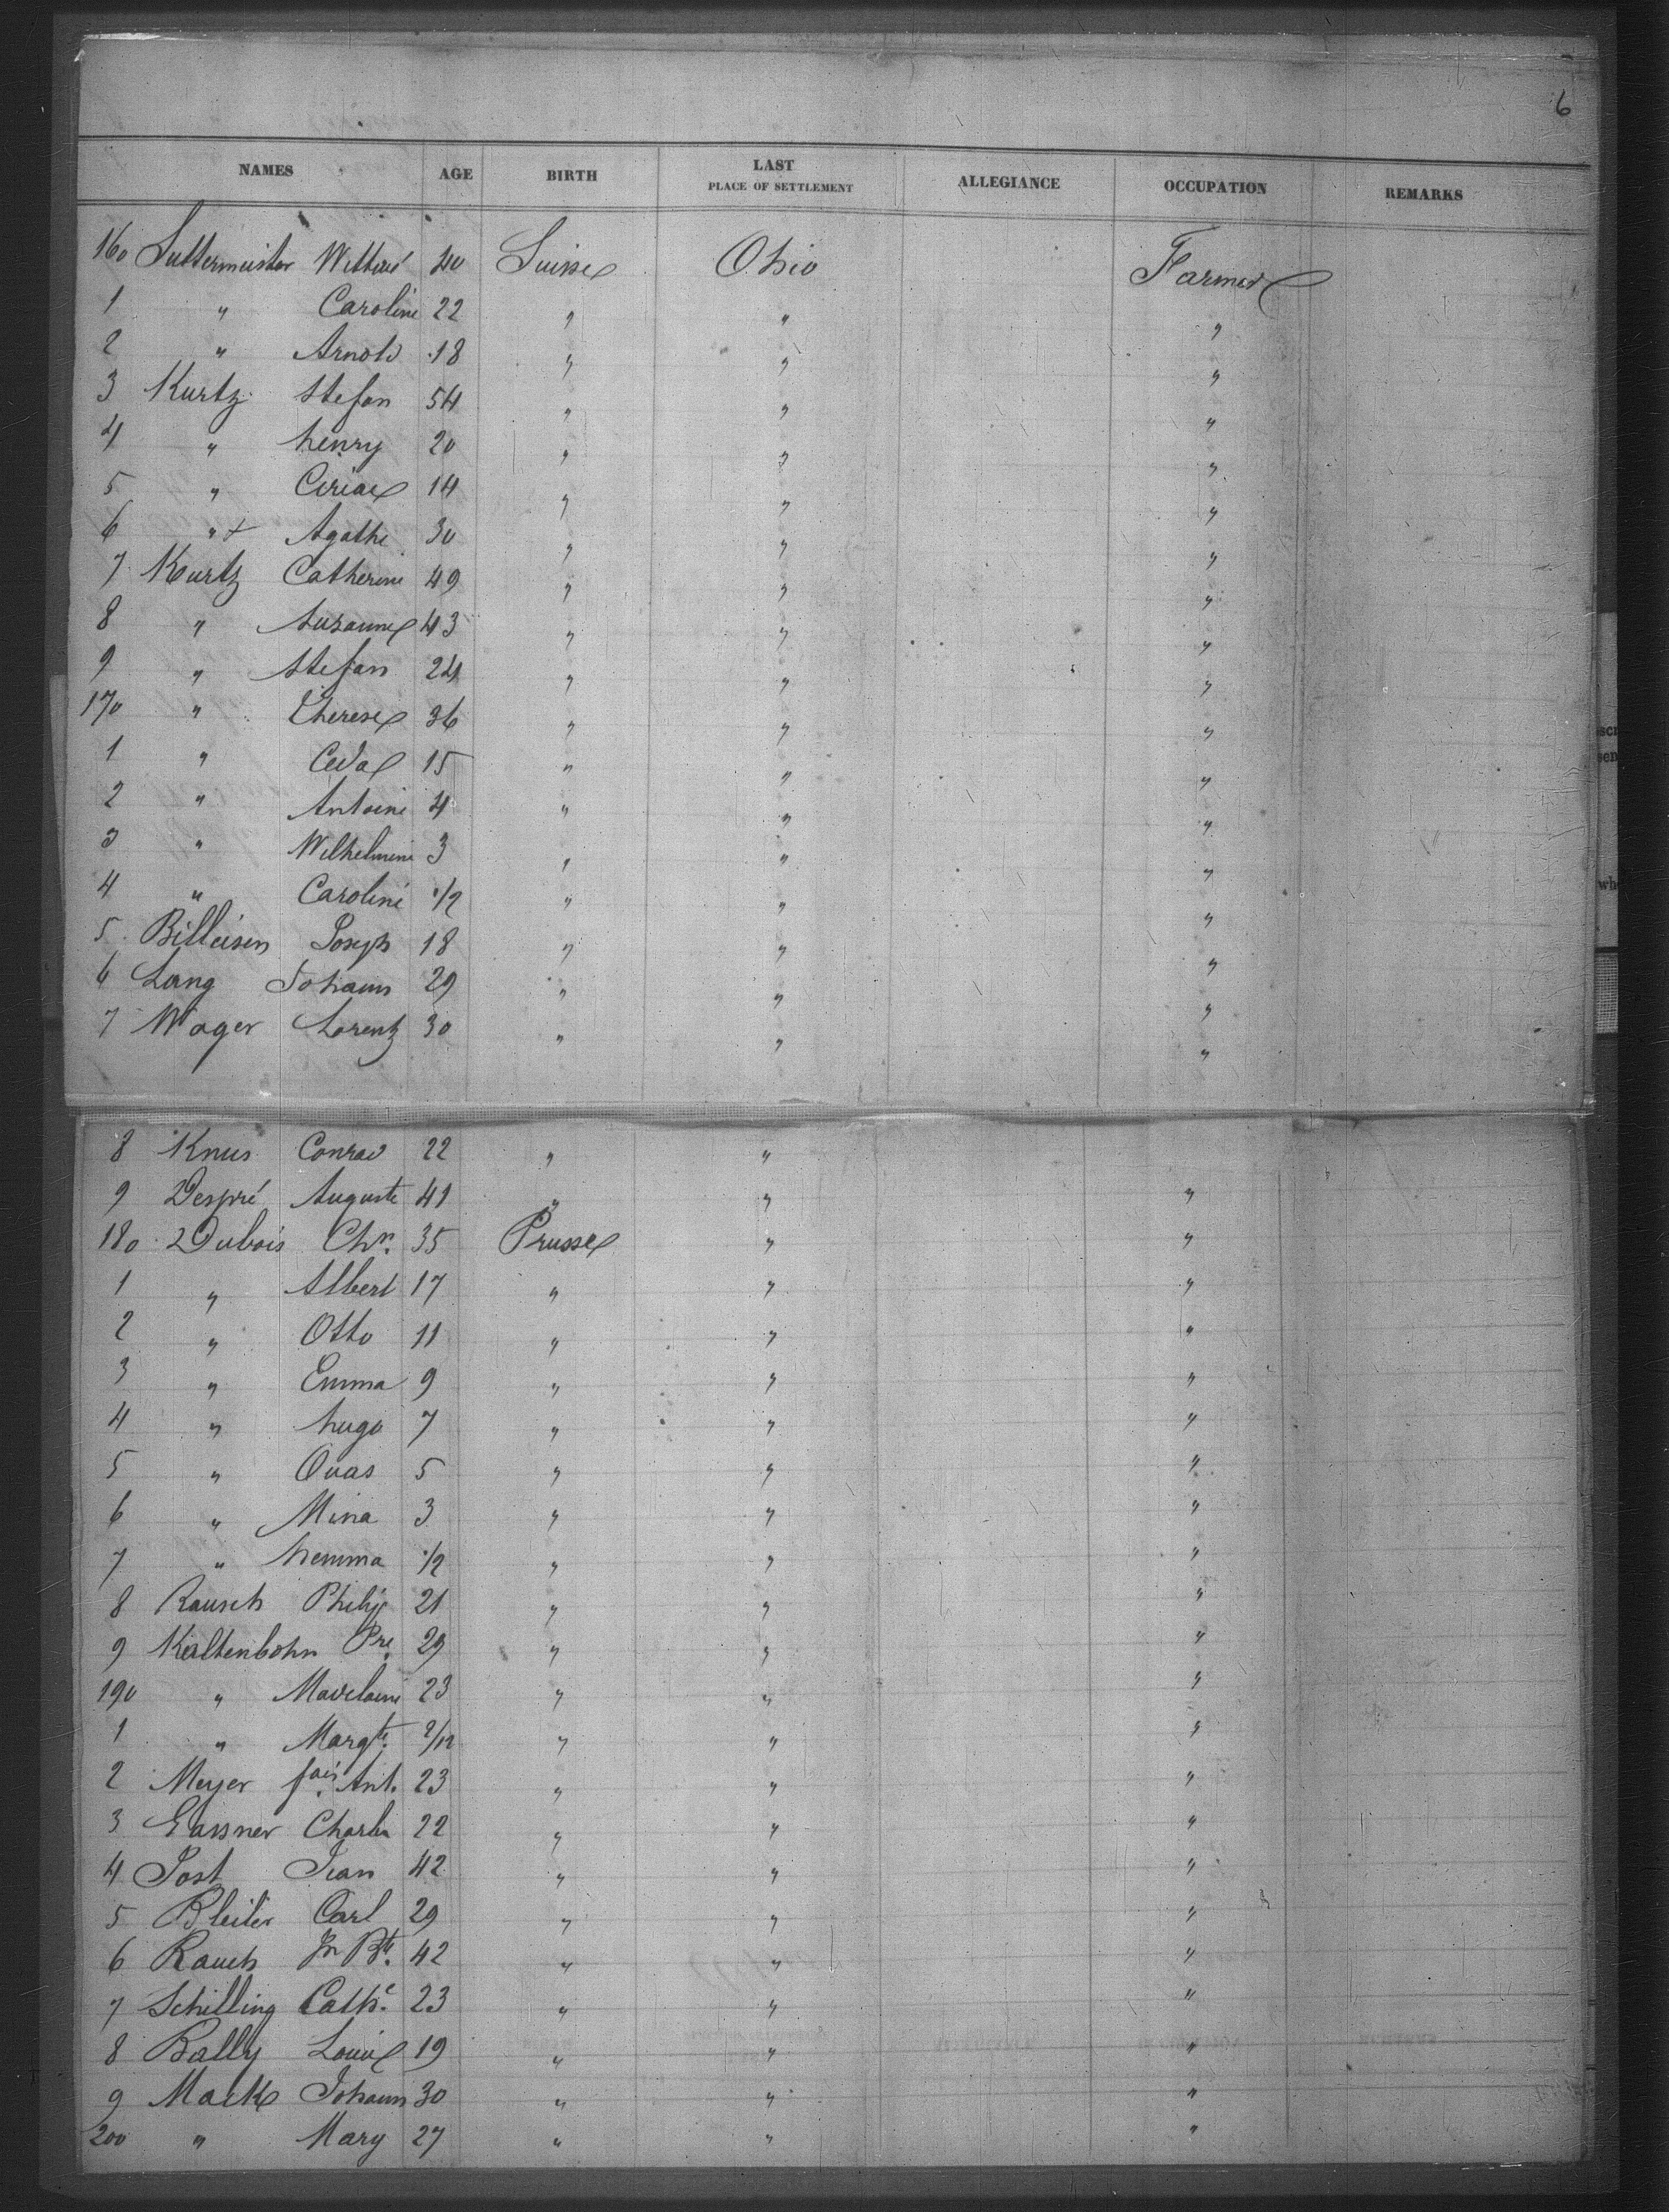 6
NAMES AGE BIRTH LAST PLACE OF SETTLEMENT ALLEGIANCE OCCUPATION REMARKS
160 Suttermeister 40 Suisse Ohio Farmer
1 " Caroline 22 " " "
2 " Arnold 18 " " "
3 Kurtz Stefan 54 " " "
4 " henry 20 " " "
5 " Ciriac 14 " " "
6 " + Agathe 30 " " "
7 Kurtz Catherine 49 " " "
8 " Suzanne 43 " " "
9 " Stefan 24 " " "
170 " Therese 36 " " "
1 " 15 " " "
2 " Antoine 4 " " "
3 " Wilhelmine 3 " " "
4 " Caroline 1/2 " " "
5 Billeisen Joseph 18 " " "
6 Lang Johann 29 " " "
7 Wager Lorentz 30 " " "
8 Knus Conrad 22 " "
9 Despré Auguste 41 " " "
180 Dubois Chn. 35 Prusse " "
1 " Albert 17 " " "
2 " Otto 11 " " "
3 " Emma 9 " " "
4 " hugo 7 " " "
5 " 5 " " "
6 " Mina 3 " " "
7 " hemma 1/2 " " "
8 Rausch Philip 21 " " "
9 Kaltenbohn Pre. 29 " " "
190 " Madelaine 23 " " "
1 " Margte. " " "
2 Meyer Ant. 23 " " "
3 Gassner Charles 22 " " "
4 Post Jean 42 " " "
5 Bleiler Carl 29 " " "
6 Rauch Jn Bte. 42 " " "
7 Schilling Cathe. 23 " " "
8 Bally Louise 19 " " "
9 Mack Johann 30 " " "
200 " Mary 27 " " "